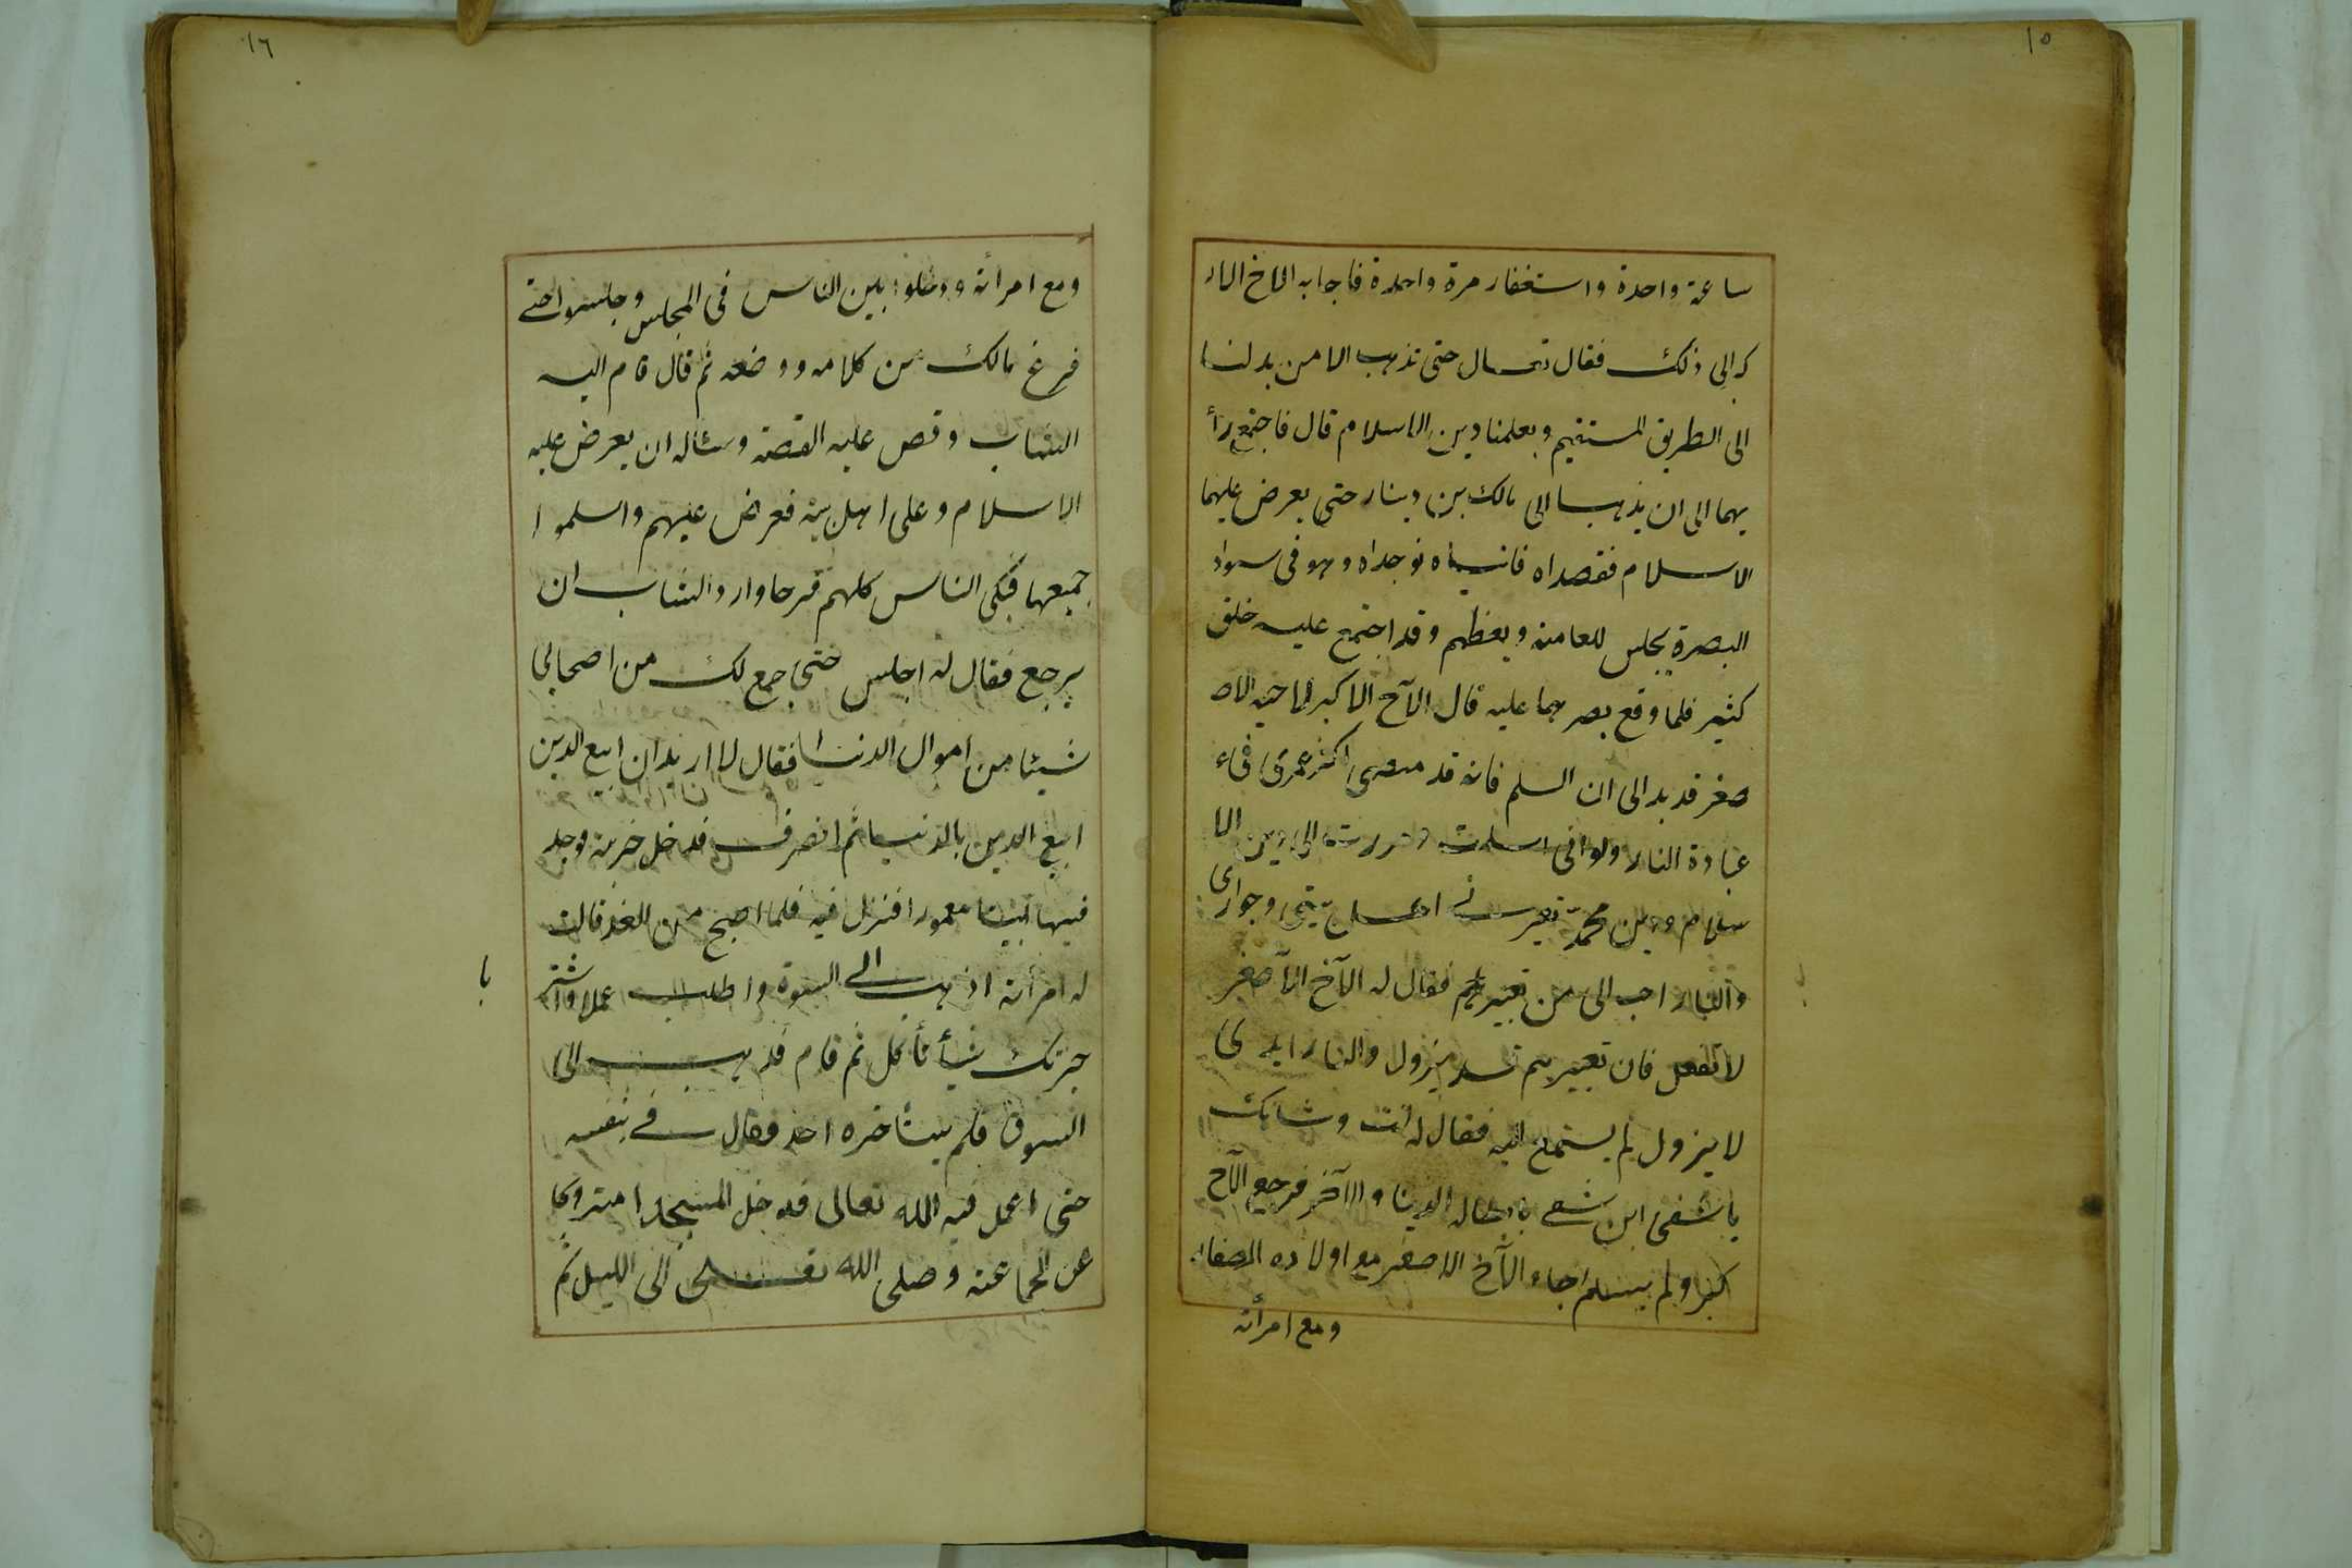 ١٥
ساعة واحدة واستغفار مرة واحدة فاجابه الاخ الا
كرالى ذلك فقال تعال حتى نذهب الا من يدلنا
الى الطريق المستقيم ويعلمنا دين الاسلام قال فاجتمع رأ
يهما الى ان يذهبا الى مالك بن دينار حتى يعرض عليهما
الاسلام فقصداه فاتياه فوجداه وهو فى سواد
البصرة يجلس للعامة ويعظهم وقد اجتمع عليه خلق
كثير فلما وقع بصرهما عليه قال الآخ الاكبر لاخيه الاص
صغر قد بدالى ان السلم فانه قد مضى اكثر عمرى فى
عبادة النار ولو انى اسلمت الى دين الا
سلام ودين محمّد تعيرنى اهل بيتى وجوارى
والنار احب الى من تعييرهم فقال له الآخ الآصغر
لا تفعل فان تعييرهم يزول والنار ابدى
لا يزول لم يستمع اليه فقال له انت وشانك
يا شقى ابن شقى الدينا والآخر فرجع الآخ
كبر ولم يسلم جاء الآخ الاصغر مع اولاده الصغار
ومع امرأته
١٦
ومع امرأته ودخلوا بين الناس فى المجلس وجلسوا حتى
فرغ مالك من كلامه ووضعه ثم قال قام اليه
الشاب وقص عليه القصة وسئاله ان يعرض عليه
الاسلام وعلى اهل بيته فعرض عليهم واسلموا
جميعها فبكى الناس كلهم فرحا واراد الشاب ان
يرجع فقال له اجلس حتى اجمع لك من اصحابى
شيئا من اموال الدنيا فقال لا اريد ان ابيع الدين
ابيع الدين بالدنيا ثم انصرف فدخل خربة وجد
فيها بيتا معمورا فنزل فيه فلما اصبح من الغد قالت
له امرأته اذهب الى السوق واطلب عملا واشتر
با
جرتك شيأ نأكل ثم قام فذهب الى
السوق فلم يستأخره احد فقال فى نفسه
حتى اعمل فيه الله تعالى فدخل المسجدا متروكا
عن الجماعة وصلى الله تعالى الى الليل ثم